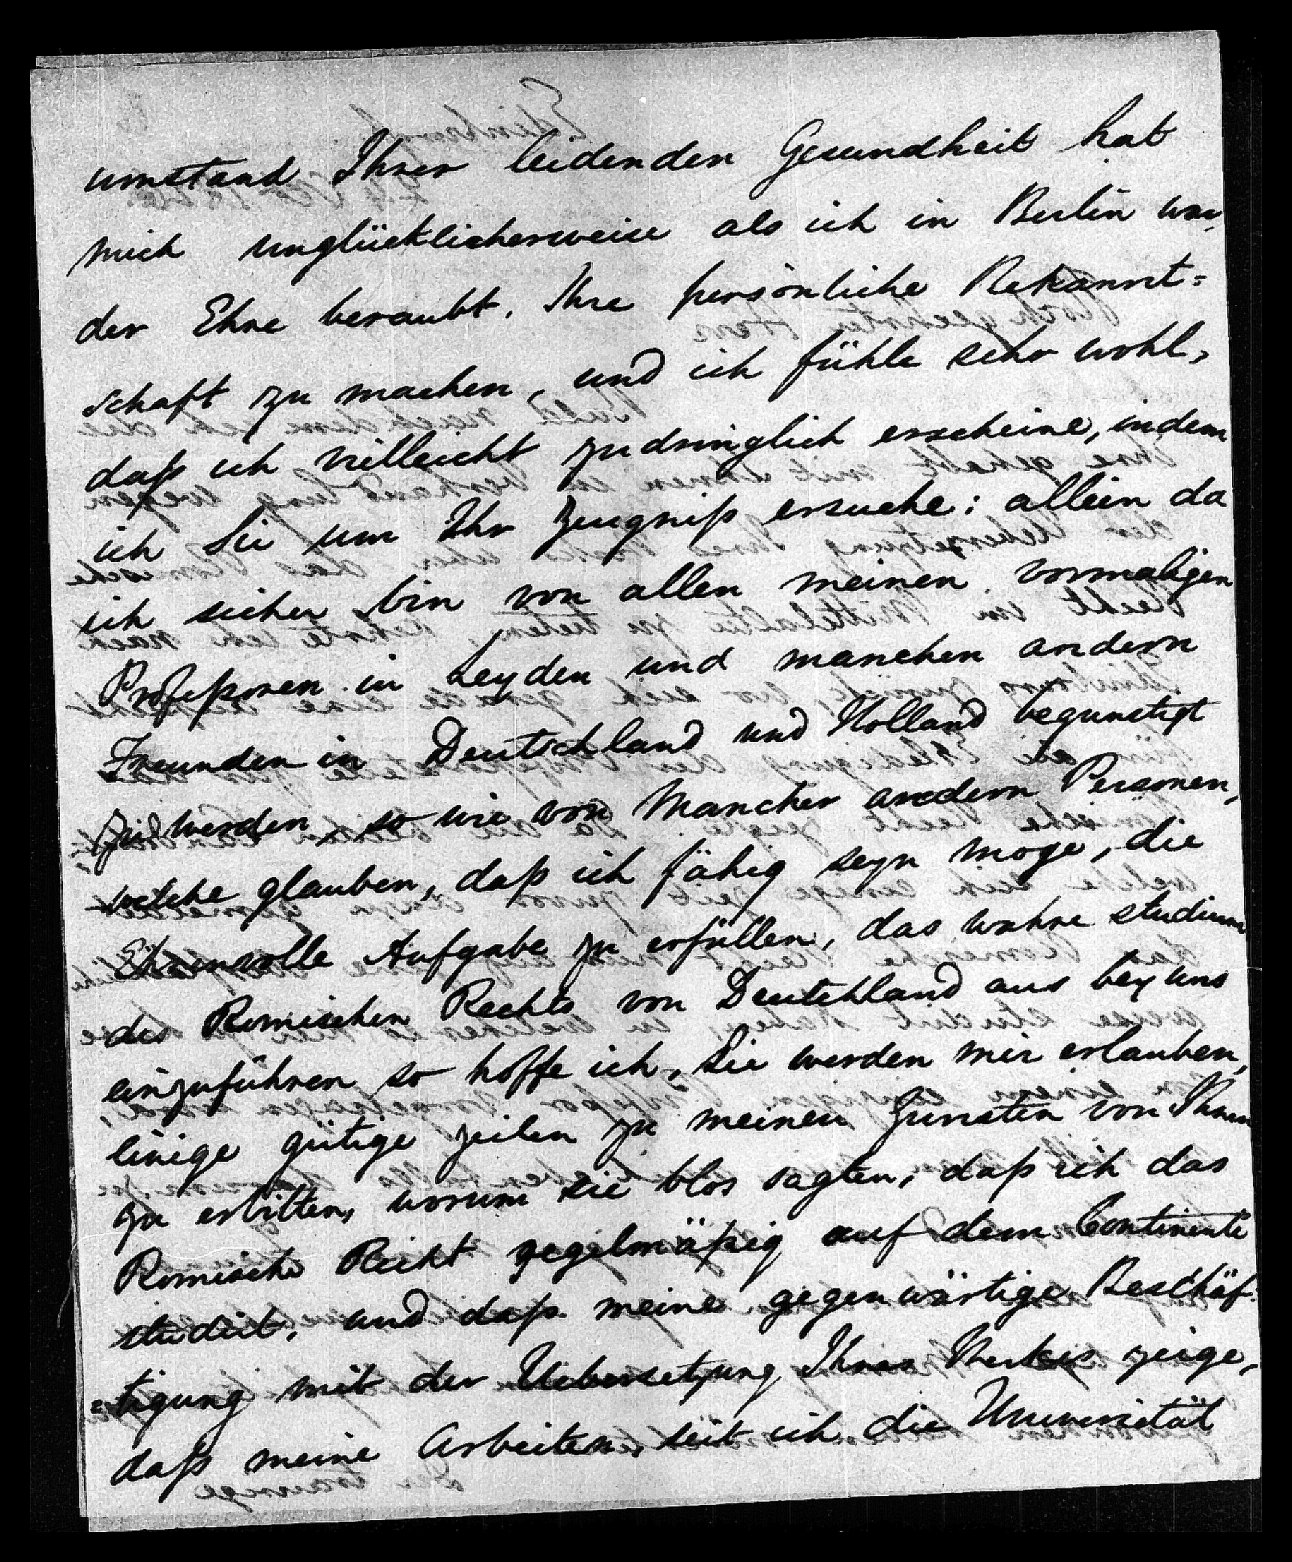 umstand Ihrer leidenden Gesundheit hat
mich unglücklicherweise als ich in Berlin war,
der Ehre beraubt, Ihre persönliche Bekannt=
schaft zu machen, und ich fühle sehr wohl,
daß ich villeicht zudringlich erscheine, indem
ich Sie um Ihr Zeugniß ersuche: allein da
ich sicher bin von allen meinen vormaligen
Profeßoren in Leyden und manchen andern
Freunden in Deutschland und Holland begunstigt
zu werden, so wie von mancher andern Personen,
welche glauben, daß ich fähig seyn moge, die
Ehrenvolle Aufgabe zu erfüllen, das wahre studium
des Romischen Rechts von Deutchland aus bey uns
einzuführen so hoffe ich, Sie werden mir erlauben,
einige gütige zeilen zu meinen Gunsten von Ihnen
zu erbitten, worum sie blos sagten, daß ich das
Romische Recht regelmäßig auf dem Continente
studiert, und daß meine gegenwärtige Beschäf=
=tigung mit der Uebersetzung Ihres Werkes zeige,
daß meine Arbeiten, seit ich die Universität